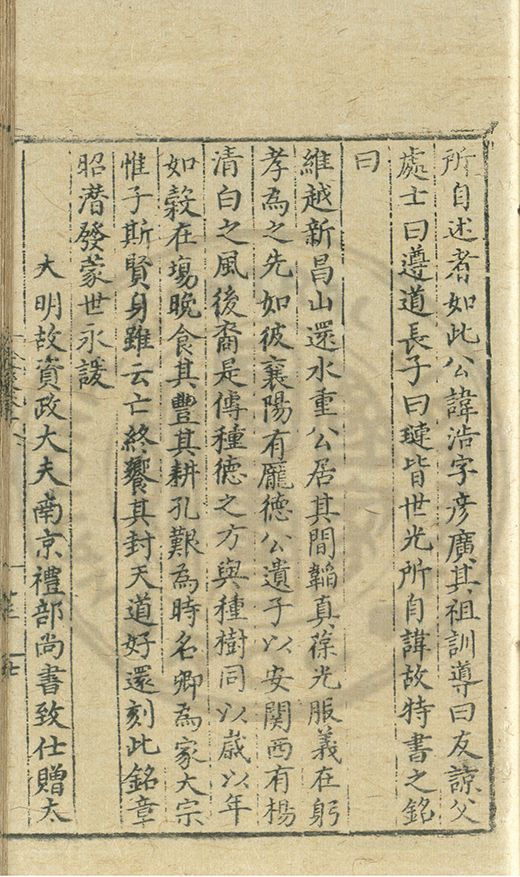 所自述者如此公諱浩字彥廣其祖訓導曰友諒父
處士曰遵道長子曰璉皆世光所自諱故特書之銘
曰
維越新昌山還水重公居其間韜真葆光服義在躬
孝為之先如彼襄陽有龐德公遺子以安関西有楊
清白之風後裔是傳種德之方與種樹同以歲以年
如穀在場晚食其豐其耕孔艱為時名卿為家大宗
惟子斯賢身雖云亡終饗其封天道好還刻此銘章
昭潛發蒙世永諼
大明故資政大夫南京禮部尚書致仕贈太